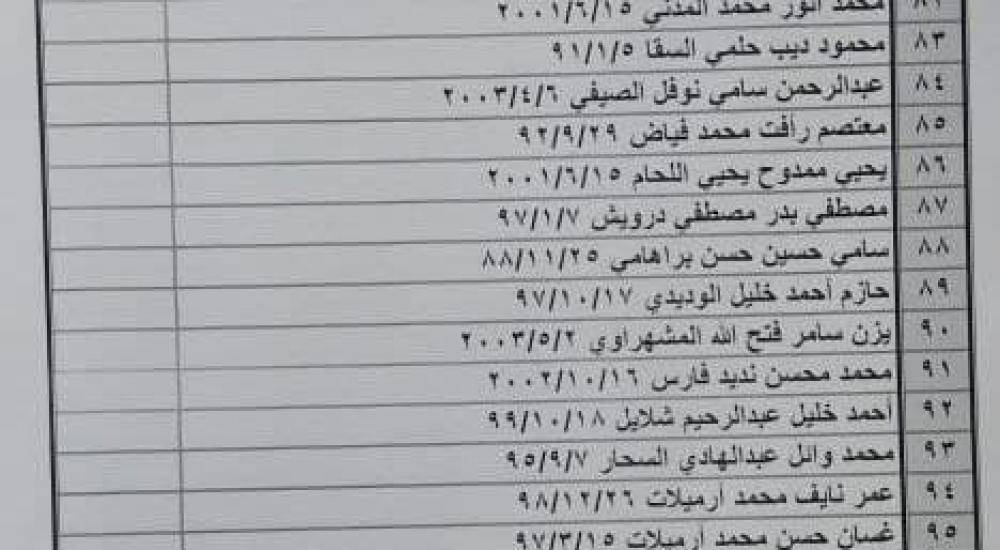 محمد أنور محمد المدني ٢٠٠١/٦/١٥
٨٣ محمود ديب حلمي السقا ٩١/١/٥
٨٤ عبدالرحمن سامي نوفل الصيفي ٢٠٠٣/٤/٦
٨٥ معتصم رأفت محمد فياض ٩٢/٩/٢٩
٨٦ يحيي ممدوح يحيي اللحام ٢٠٠١/٦/١٥
٨٧ مصطفي بدر مصطفي درويش ٩٧/١/٧
٨٨ سامي حسين حسن براهامي ٨٨/١١/٢٥
٨٩ حازم أحمد خليل الوديدي ٩٧/١٠/١٧
٩٠ يزن سامر فتح الله المشهراوي ٢٠٠٣/٥/٢
٩١ محمد محسن نديد فارس ٢٠٠٢/١٠/١٦
٩٢ أحمد خليل عبدالرحيم شلايل ٩٩/١٠/١٨
٩٣ محمد وائل عبدالهادي السحار ٩٥/٩/٧
٩٤ عمر نايف محمد أرميلات ٩٨/١٢/٢٦
٩٥ غسان حسن محمد أرميلات ٩٧/٣/١٥